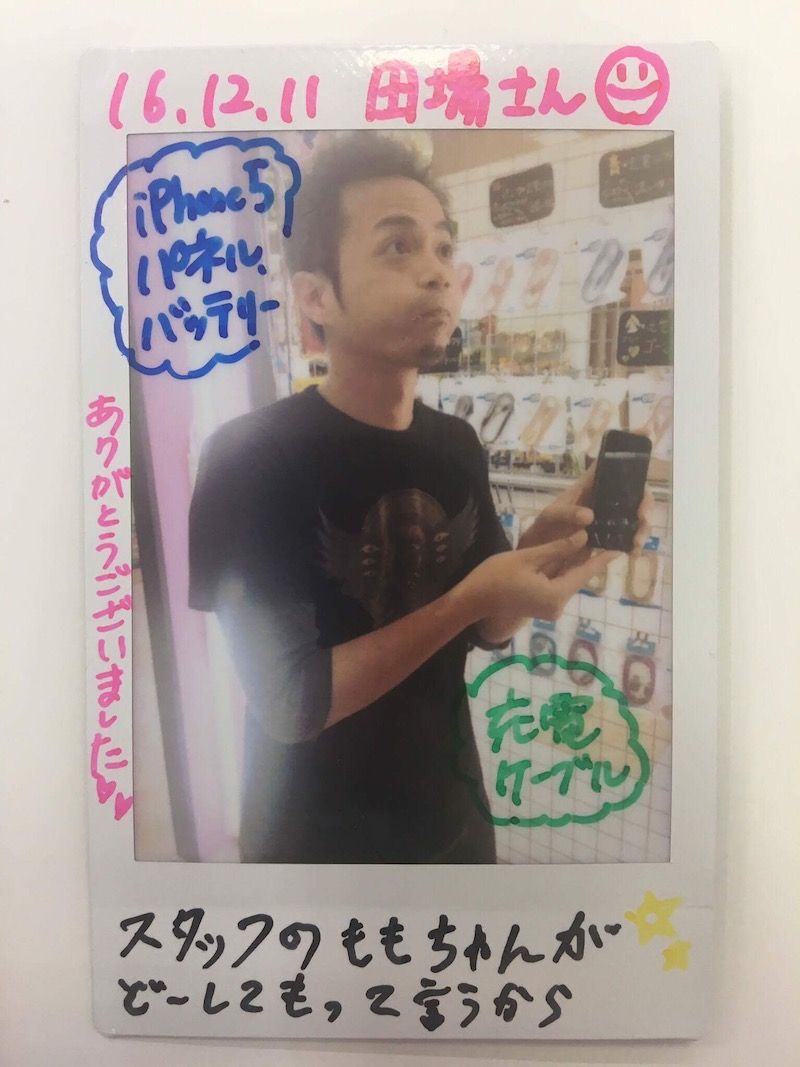 16.12.11 田場さん
iPhone5
パネル、
バッテリー
ありがとうございました
充電
ケーブル
スタッフのももちゃんが
どーしてもって言うから